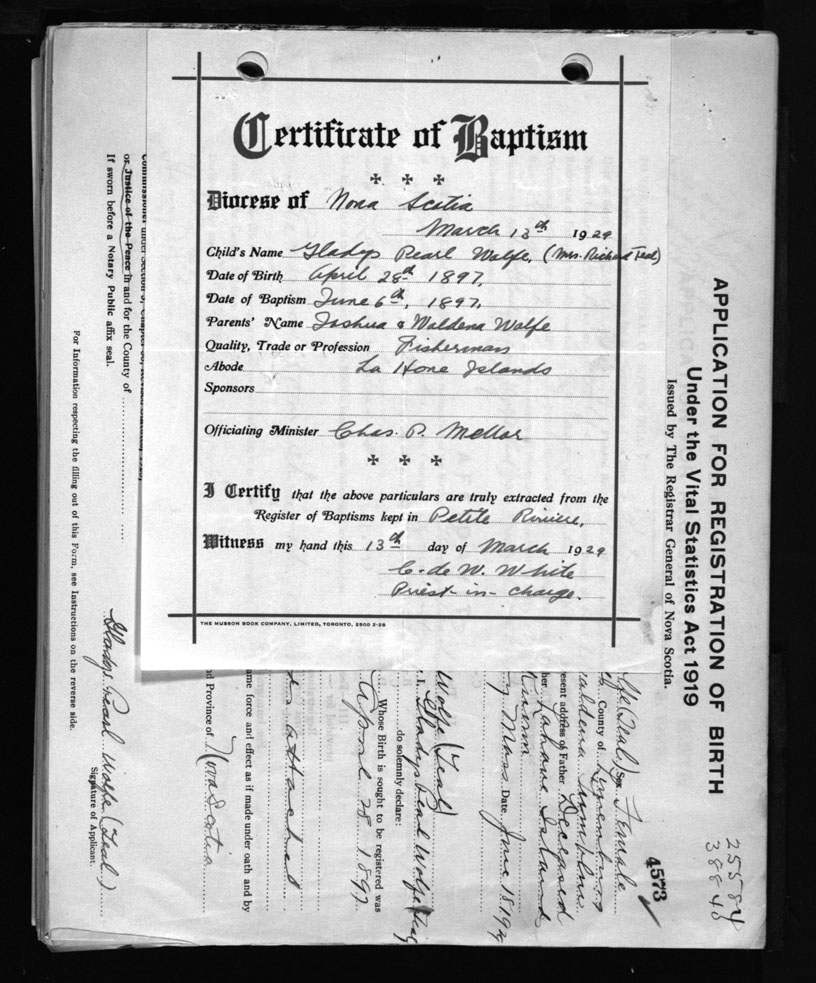 Certificate of Baptism
Diocese of Nova Scotia
March 13th 1929
Child's Name Gladys Pearl Wolfe, (Mrs. Richard Teal)
Date of Birth April 28th 1897,
Date of Baptism June 6th, 1897,
Parents' Name Joshua & Waldena Wolfe
Quality, Trade or Profession Fisherman
Abode La Have Islands
Sponsors
Officiating Minister Chas. P. Mellor
I Certify that the above particulars are truly extracted from the
Register of Baptisms kept in Petite Riviere,
Witness my hand this 13th day of March 1929
C. de W. White
Priest-in-charge.
THE MUSSON BOOK COMPANY, LIMITED, TORONTO. 2500 2-28
APPLICATION FOR REGISTRATION OF BIRTH
Under the Vital Statistics Act 1919
Issued by The Registrar General of Nova Scotia.
25584
38848
4573
(Teal) Sex Female
County of Lunenburg
present address of Father Deceased
Lahave Island
Mass. Date June 18, 19
Wolfe (Teal)
I, Gladys Pearl Wolfe (Teal)
do solemnly declare:
Whose Birth is sought to be registered was
April 28 1897
attached
same force and effect as if made under oath and by
and Province of Nova Scotia
or Justice of the Peace in and for the County of
If sworn before a Notary Public affix seal.
Gladys Pearl Wolfe (Teal)
Signature of Applicant.
For Information respecting the filling out of this Form, see Instructions on the reverse side.